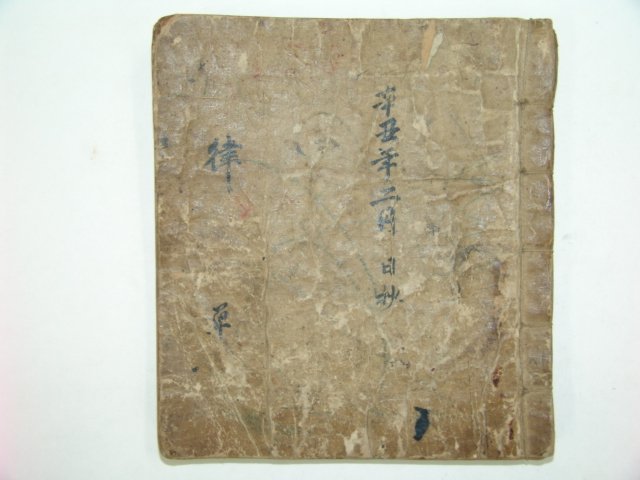 辛丑年二月 日抄
律草